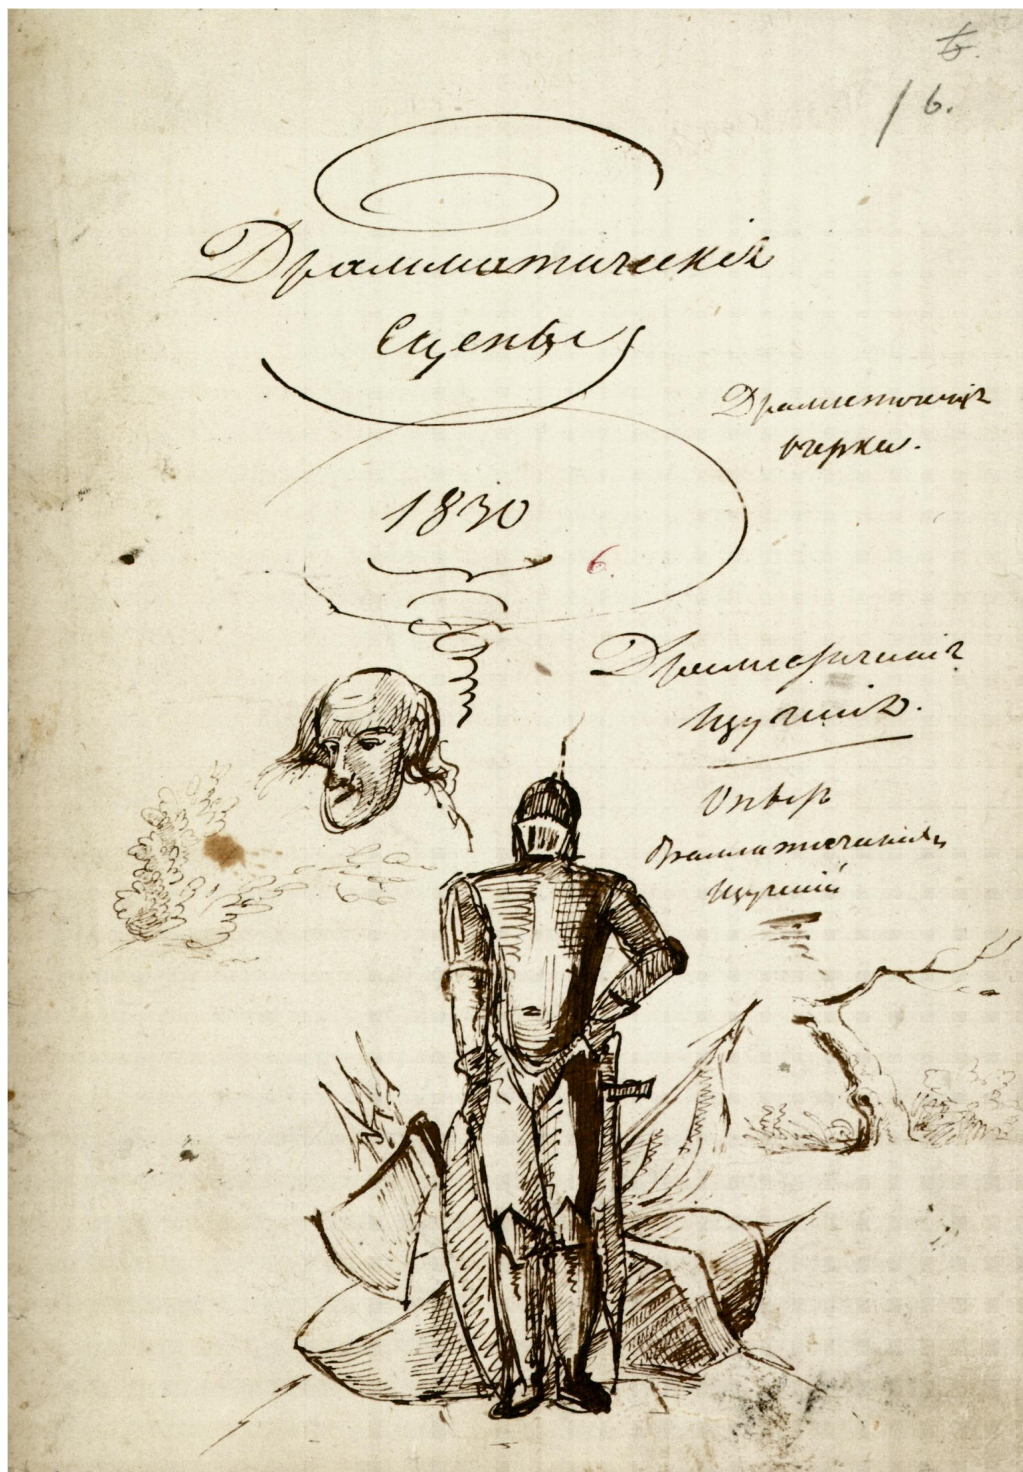 6.
6.
Драмматическія
Сцены
1830
6.
Драматическіе
очерки.
Драматическія
Изученія.
Опытъ
драмматическихъ
изученій